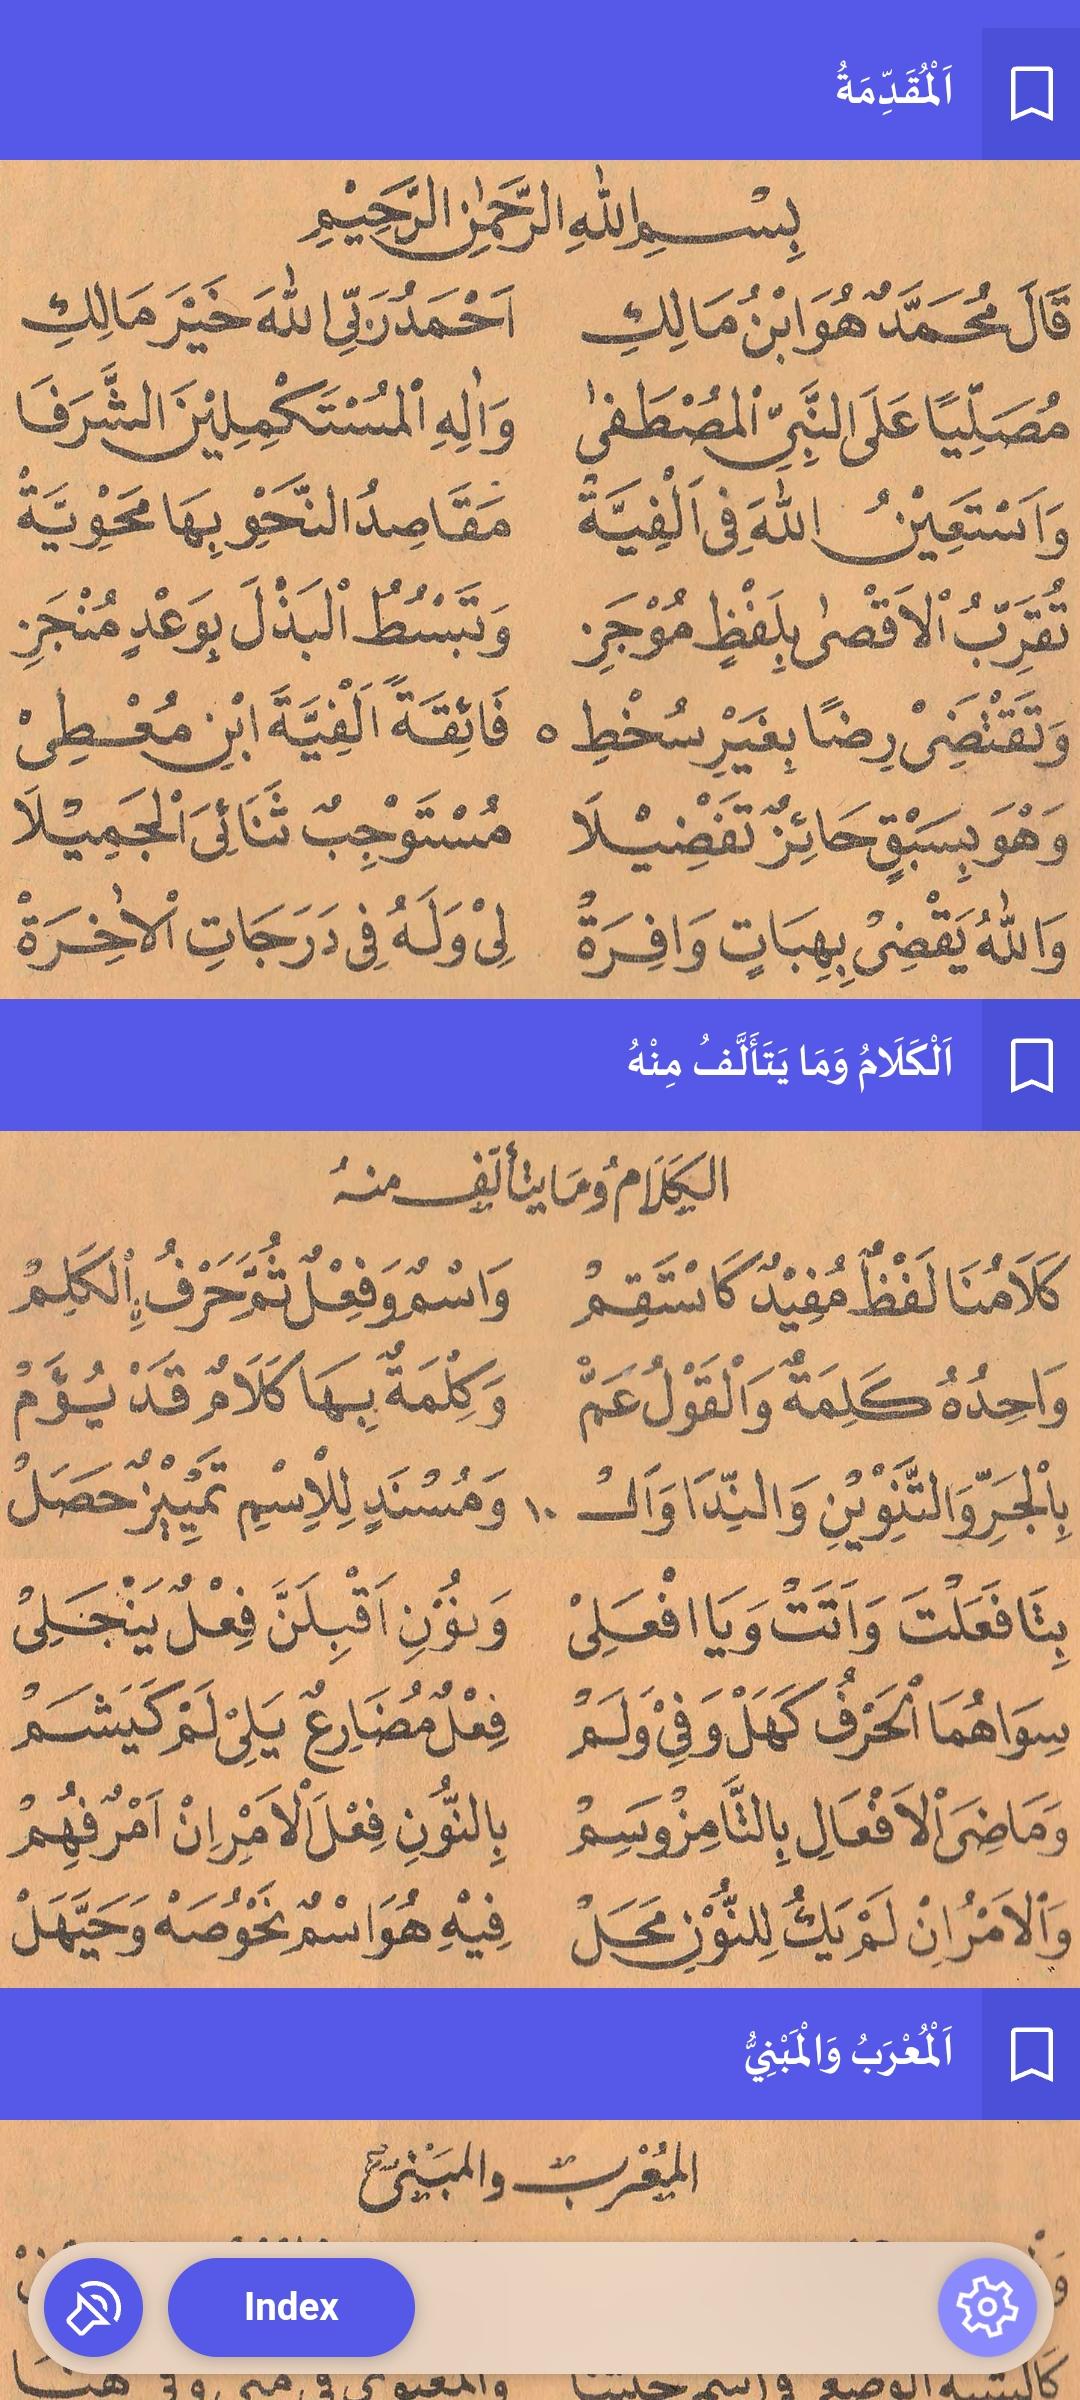 اَلْمُقَدِّمَةُ
بِسْمِ اللّٰهِ الرَّحْمٰنِ الرَّحِيْمِ
قَالَ مُحَمَّدٌ هُوَ ابْنُ مَالِكِ اَحْمَدُ رَبِّي اللّٰهَ خَيْرَ مَالِكِ
مُصَلِّيًا عَلَى النَّبِيِّ الْمُصْطَفٰى وَاٰلِهِ الْمُسْتَكْمِلِيْنَ الشَّرَفَا
وَاَسْتَعِيْنُ اللّٰهَ فِى اَلْفِيَّةْ مَقَاصِدُ النَّحْوِ بِهَا مَحْوِيَّةْ
تُقَرِّبُ الْاَقْصٰى بِلَفْظٍ مُوْجَزِ وَتَبْسُطُ الْبَذْلَ بِوَعْدٍ مُنْجَزِ
وَتَقْتَضِىْ رِضًا بِغَيْرِ سُخْطِ ٥ فَائِقَةً اَلْفِيَّةَ ابْنِ مُعْطِىْ
وَهْوَ بِسَبْقٍ حَائِزٌ تَفْضِيْلَا مُسْتَوْجِبٌ ثَنَائِىَ الْجَمِيْلَا
وَاللّٰهُ يَقْضِىْ بِهِبَاتٍ وَافِرَةْ لِىْ وَلَهُ فِى دَرَجَاتِ الْاٰخِرَةْ
اَلْكَلَامُ وَمَا يَتَأَلَّفُ مِنْهُ
الْكَلَامُ وَمَا يَتَأَلَّفُ مِنْهُ
كَلَامُنَا لَفْظٌ مُفِيْدٌ كَاسْتَقِمْ وَاسْمٌ وَفِعْلٌ ثُمَّ حَرْفٌ الْكَلِمْ
وَاحِدُهُ كَلِمَةٌ وَالْقَوْلُ عَمّْ وَكِلْمَةٌ بِهَا كَلَامٌ قَدْ يُؤَمْ
بِالْجَرِّ وَالتَّنْوِيْنِ وَالنِّدَا وَاَلْ ١٠ وَمُسْنَدٍ لِلْاِسْمِ تَمْيِيْزٌ حَصَلْ
بِتَا فَعَلْتَ وَاَتَتْ وَيَا افْعَلِىْ وَنُوْنِ اَقْبِلَنَّ فِعْلٌ يَنْجَلِىْ
سِوَاهُمَا الْحَرْفُ كَهَلْ وَفِىْ وَلَمْ فِعْلٌ مُضَارِعٌ يَلِىْ لَمْ كَيَشَمْ
وَمَاضِىَ الْاَفْعَالِ بِالتَّا مِزْ وَسِمْ بِالنُّوْنِ فِعْلَ الْاَمْرِ اِنْ اَمْرٌ فُهِمْ
وَالْاَمْرُ اِنْ لَمْ يَكُ لِلنُّوْنِ مَحَلْ فِيْهِ هُوَ اسْمٌ نَحْوُ صَهْ وَحَيَّهَلْ
اَلْمُعْرَبُ وَالْمَبْنِيُّ
الْمُعْرَبُ وَالْمَبْنِىُّ
Index